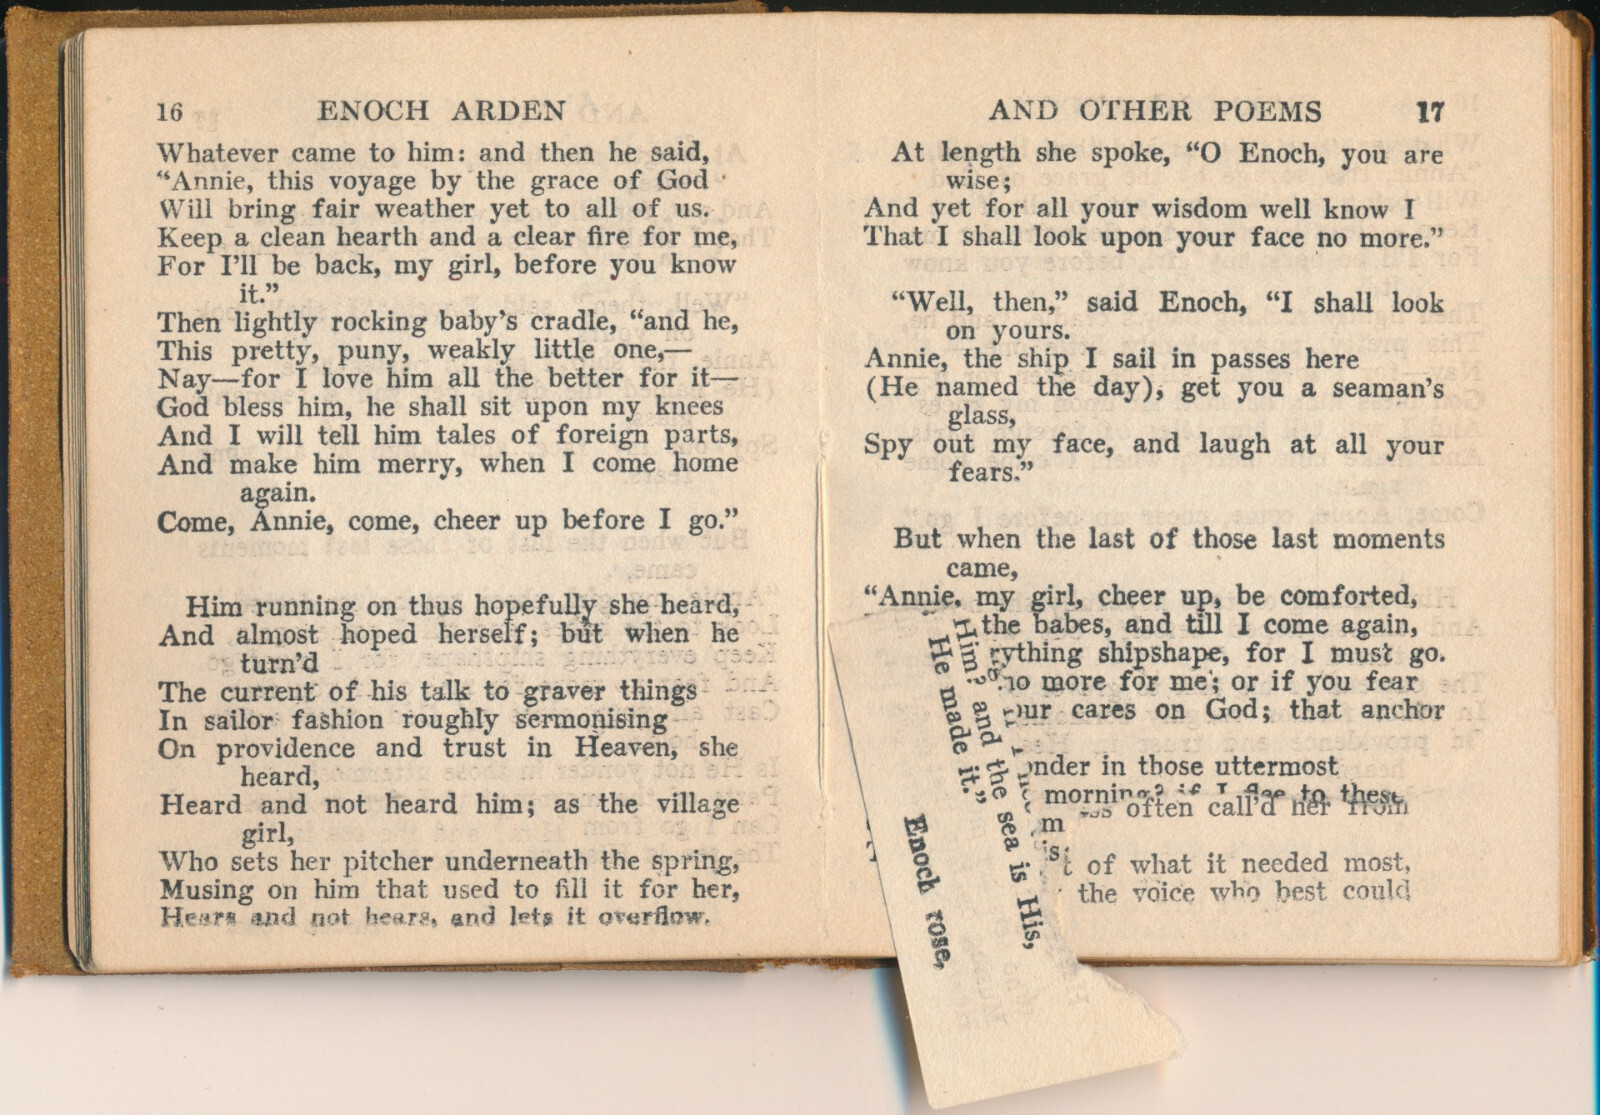 16 ENOCH ARDEN
Whatever came to him: and then he said,
“Annie, this voyage by the grace of God
Will bring fair weather yet to all of us.
Keep a clean hearth and a clear fire for me,
For I’ll be back, my girl, before you know
it.”
Then lightly rocking baby’s cradle, “and he,
This pretty, puny, weakly little one,—
Nay—for I love him all the better for it—
God bless him, he shall sit upon my knees
And I will tell him tales of foreign parts,
And make him merry, when I come home
again.
Come, Annie, come, cheer up before I go.”
Him running on thus hopefully she heard,
And almost hoped herself; but when he
turn’d
The current of his talk to graver things
In sailor fashion roughly sermonising
On providence and trust in Heaven, she
heard,
Heard and not heard him; as the village
girl,
Who sets her pitcher underneath the spring,
Musing on him that used to fill it for her,
Hears and not hears, and lets it overflow.
AND OTHER POEMS 17
At length she spoke, “O Enoch, you are
wise;
And yet for all your wisdom well know I
That I shall look upon your face no more.”
“Well, then,” said Enoch, “I shall look
on yours.
Annie, the ship I sail in passes here
(He named the day), get you a seaman’s
glass,
Spy out my face, and laugh at all your
fears.”
But when the last of those last moments
came,
“Annie, my girl, cheer up, be comforted,
the babes, and till I come again,
rything shipshape, for I must go.
no more for me; or if you fear
our cares on God; that anchor
onder in those uttermost
morning? if I flee to these
often call’d her from
m
is:
of what it needed most,
the voice who best could
Him? and the sea is His,
He made it.”
Enoch rose,